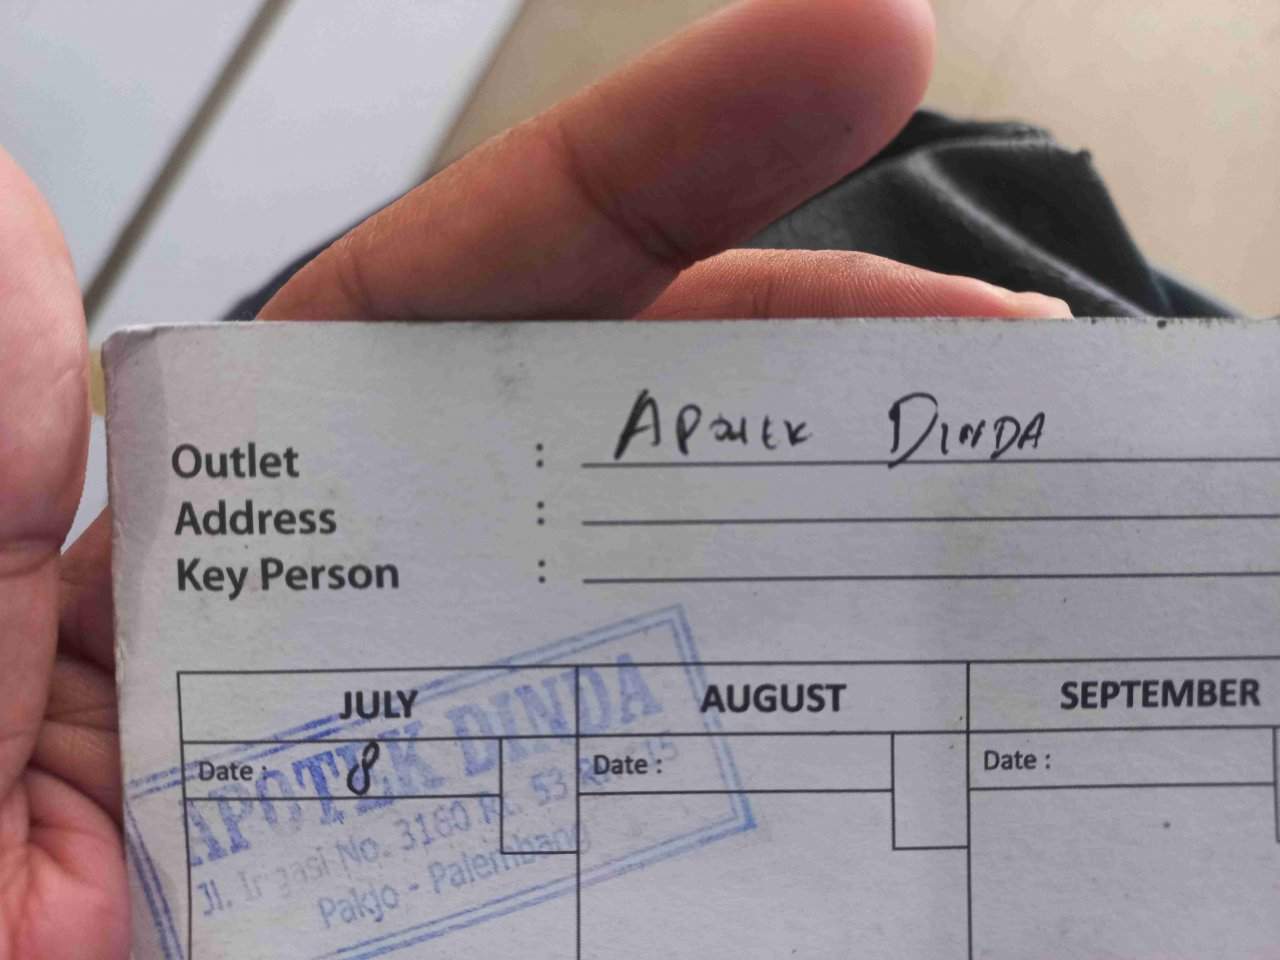 Outlet : APOTEK DINDA
Address :
Key Person :
JULY AUGUST SEPTEMBER
Date : 8 Date : Date :
APOTEK DINDA
Jl. Irigasi No. 3160 Rt. 53
Pakjo - Palembang